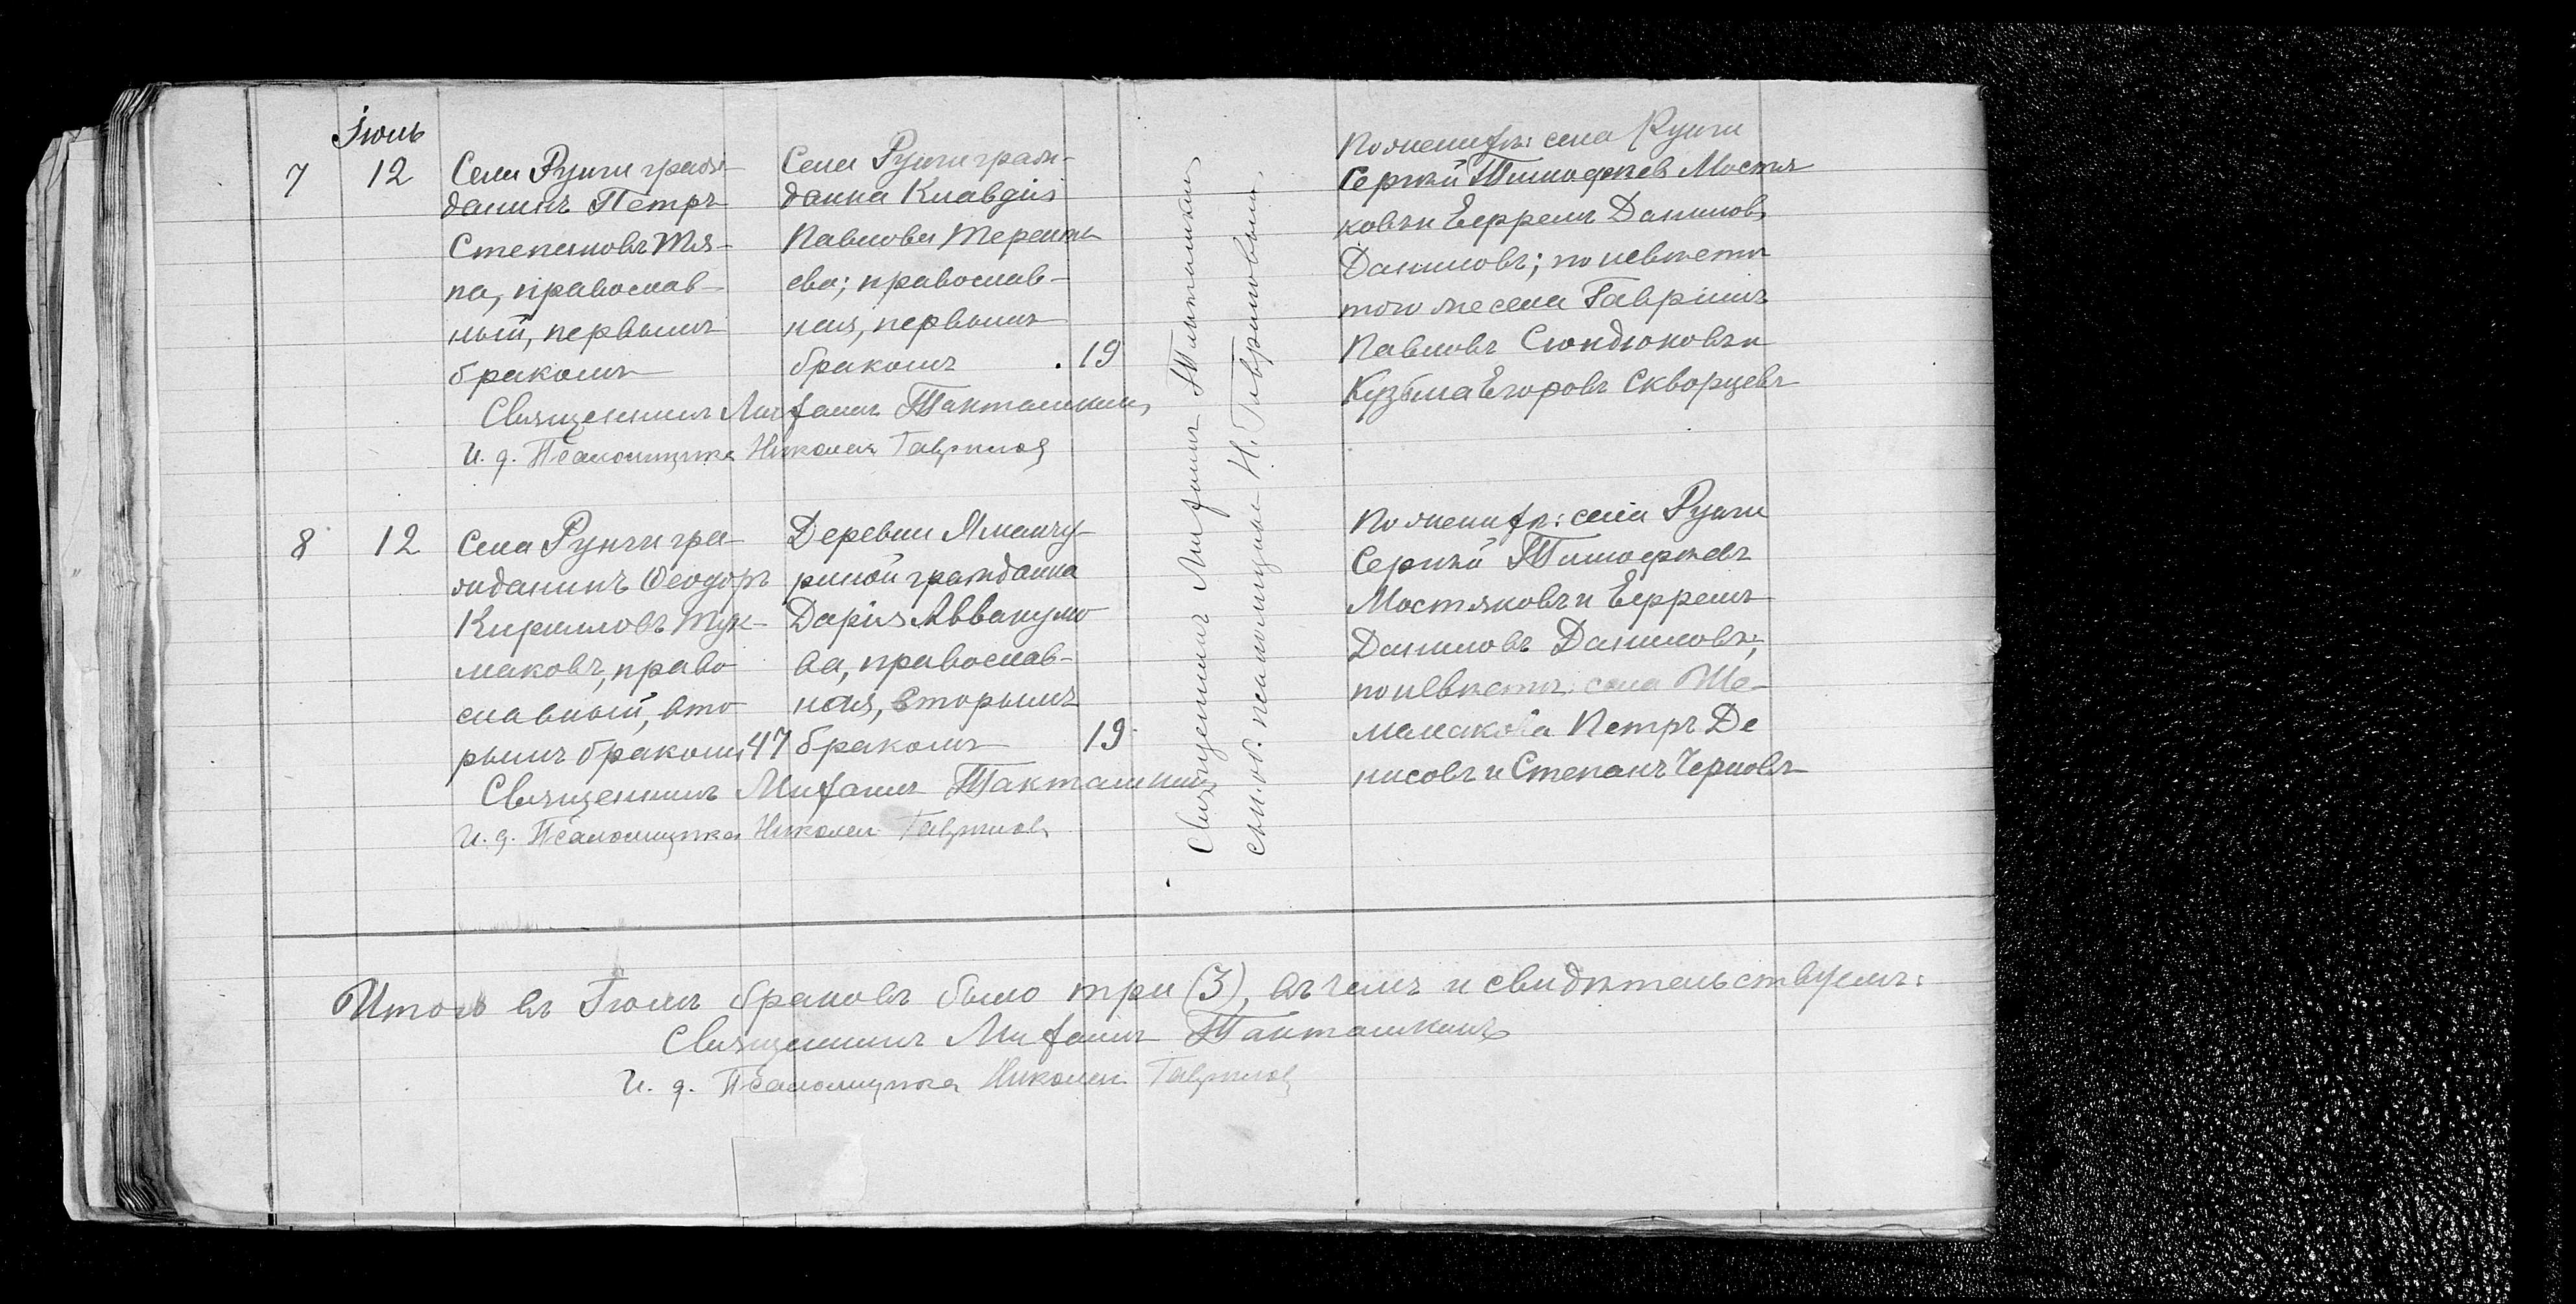 Іюль
7
12
Села Рунги граж-
данинъ Петръ
Степановъ Тя-
па, православ-
ный, первымъ
бракомъ
Села Рунги граж-
данка Клавдія
Павлова Теренть
ева; православ-
ная, первымъ
бракомъ
19
Священникъ Митрофанъ Такташкинъ
И. д. Псаломщика Николай Гавриловъ
Священникъ
псаломщикъ Н. Гавриловымъ
По женихѣ: села Рунги
Сергѣй Тимофѣевъ Мостя
ковъ и Ефремъ Даниловъ
Даниловъ; по невѣстѣ
того же села Гавріилъ
Павловъ Сюндюковъ и
Кузьма Егоровъ Скворцевъ
8
12
Села Рунги гра-
жданинъ Ѳеодоръ
Кирилловъ Тук-
маковъ, право
славный, вто
рымъ бракомъ
47
Деревни Яманчу-
риной гражданка
Дарія Аввакумо
ва, православ-
ная, вторымъ
бракомъ
19
Священникъ Такташкинъ
И. д. Псаломщика Николай Гавриловъ
По женихѣ: села Рунги
Сергѣй Тимофѣевъ
Мостяковъ и Ефремъ
Даниловъ Даниловъ;
по невѣстѣ: села Ше-
малакова Петръ Де
нисовъ и Степанъ Черновъ
Итого въ Іюлѣ браковъ было три (3), въ чемъ и свидѣтельствуемъ:
Священникъ Такташкинъ
И. д. Псаломщика Николай Гавриловъ